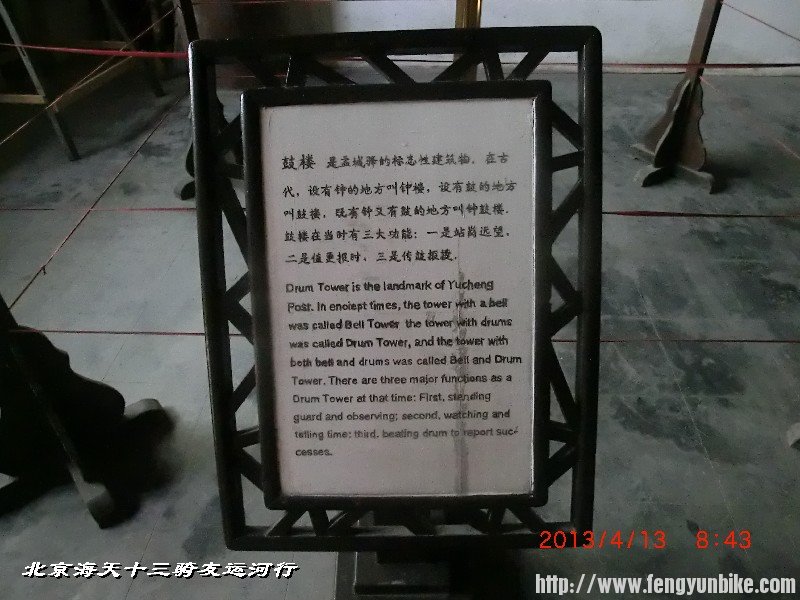 鼓楼 是盂城驿的标志性建筑物，在古
代，设有钟的地方叫钟楼，设有鼓的地方
叫鼓楼，既有钟又有鼓的地方叫钟鼓楼．
鼓楼在当时有三大功能：一是站岗远望，
二是值更报时，三是传鼓报捷．
Drum Tower is the landmark of Yucheng
Post. In encient times, the tower with a bell
was called Bell Tower, the tower with drums
was called Drum Tower, and the tower with
both bell and drums was called Bell and Drum
Tower. There are three major functions as a
Drum Tower at that time: First, standing
guard and observing; second, watching and
telling time; third, beating drum to report suc-
cesses.
2013/4/13 8:43
北京海天十三骑友运河行
http://www.fengyunbike.com